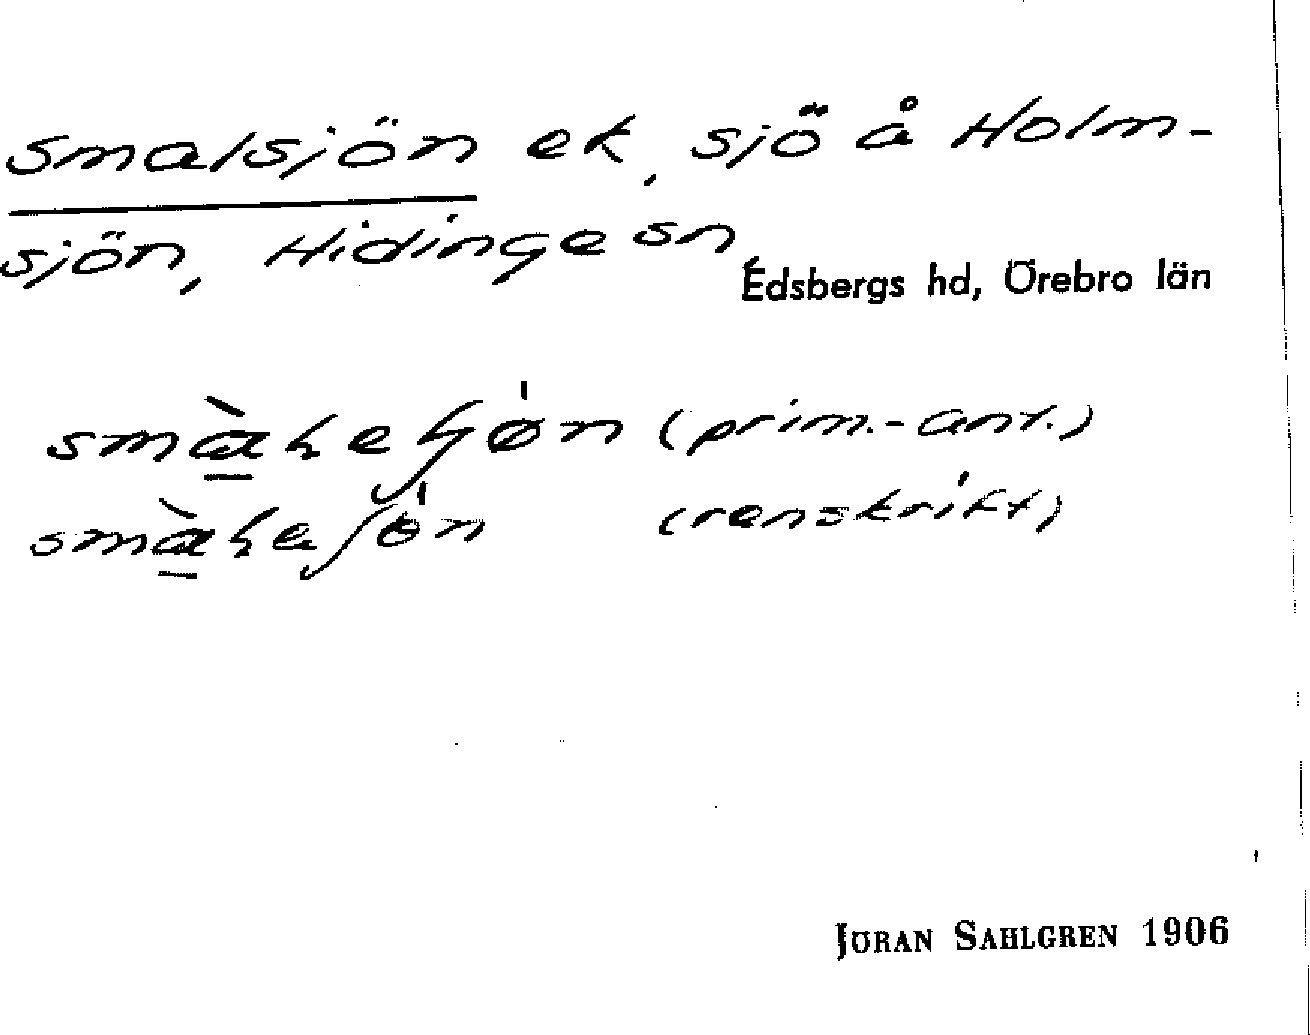 Smalsjön ek, sjö å Holm-
sjön, Hidinge sn,
Edsbergs hd, Örebro län
(prim.-ant.)
(renskrift)
JÖRAN SAHLGREN 1906